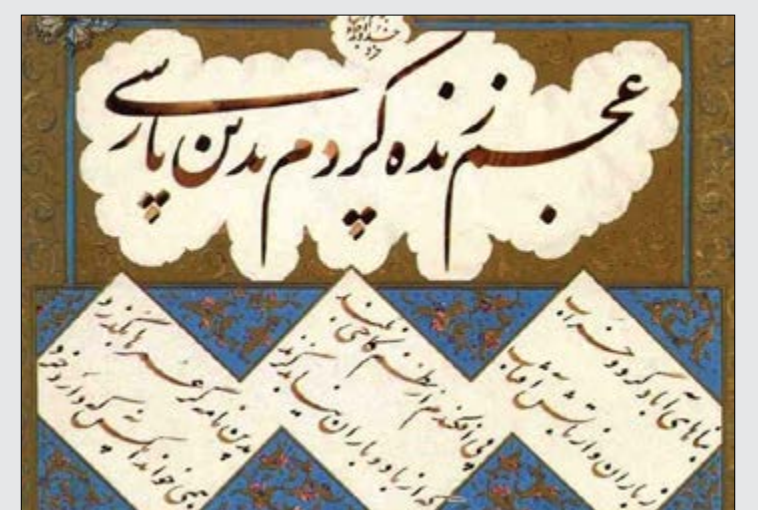 خداوند جان
خرد
عجم زنده کردم بدین پارسی
بناهای آباد گردد خراب
ز باران و از تابش آفتاب
پی افکندم از نظم کاخی بلند
که از باد و باران نیابد گزند
بدین نامه بر عمرها بگذرد
همی خواند آنکس که دارد خرد